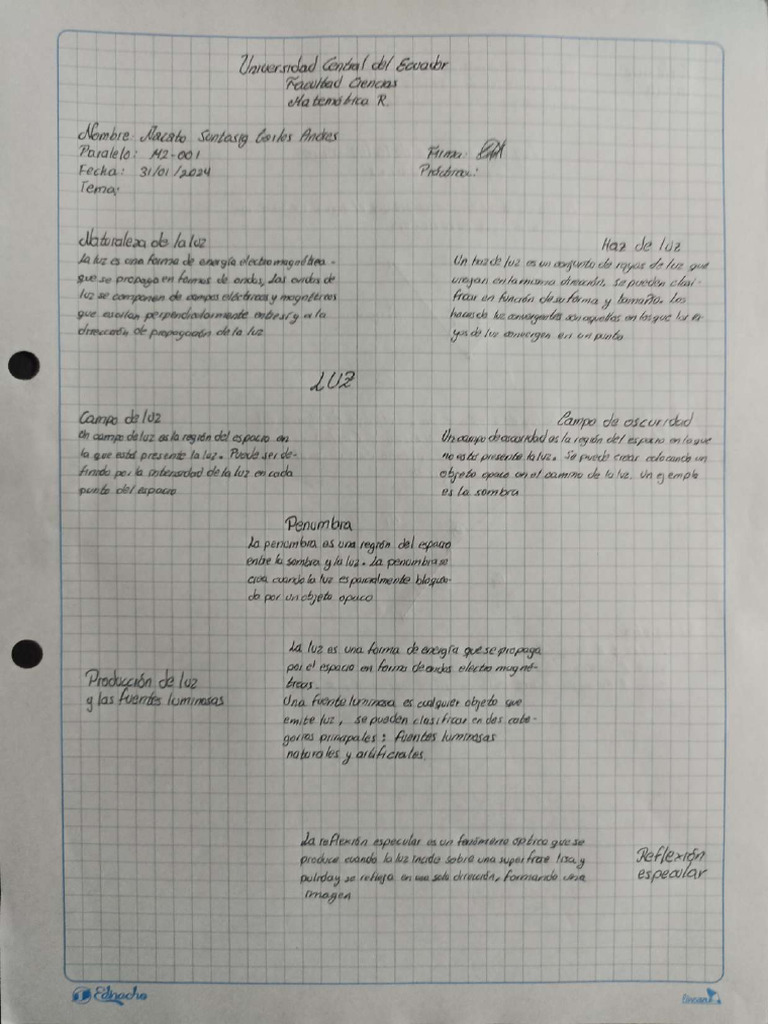 Universidad Central del Ecuador
Facultad Ciencias
Matemática R.
Nombre: Macato Suntasig Carlos Andres
Paralelo: M2-001
Firma:
Fecha: 31/01/2024
Tema:
Naturaleza de la luz
La luz es una forma de energía electromagnética
que se propaga en formas de ondas, Las ondas de
luz se componen de campos eléctricos y magnéticos
que oscilan perpendicularmente entre sí y a la
dirección de propagación de la luz
Haz de luz
Un haz de luz es un conjunto de rayos de luz que
viajan en la misma dirección, se pueden clasi-
ficar en función de su forma y tamaño. Los
haces de luz convergentes son aquellos en los que los ra-
yos de luz convergen en un punto
LUZ
Campo de luz
Un campo de luz es la región del espacio en
la que está presente la luz. Puede ser de-
finido por la intensidad de la luz en cada
punto del espacio
Campo de oscuridad
Un campo de oscuridad es la región del espacio en la que
no esta presente la luz. Se puede crear colocando un
objeto opaco en el camino de la luz. Un ejemplo
es la sombra
Penumbra
La penumbra es una región del espacio
entre la sombra y la luz. La penumbra se
crea cuando la luz es parcialmente bloquea-
da por un objeto opaco
Producción de luz
y las fuentes luminosas
La luz es una forma de energía que se propaga
por el espacio en forma de ondas electromagné-
ticas.
Una fuente luminosa es cualquier objeto que
emite luz, se pueden clasificar en dos cate-
gorias principales: fuentes luminosas
naturales y artificiales.
La reflexión especular es un fenómeno optico que se
produce cuando la luz incide sobre una superficie lisa y
pulida y se refleja en una sola dirección, formando una
imagen
Reflexión
especular